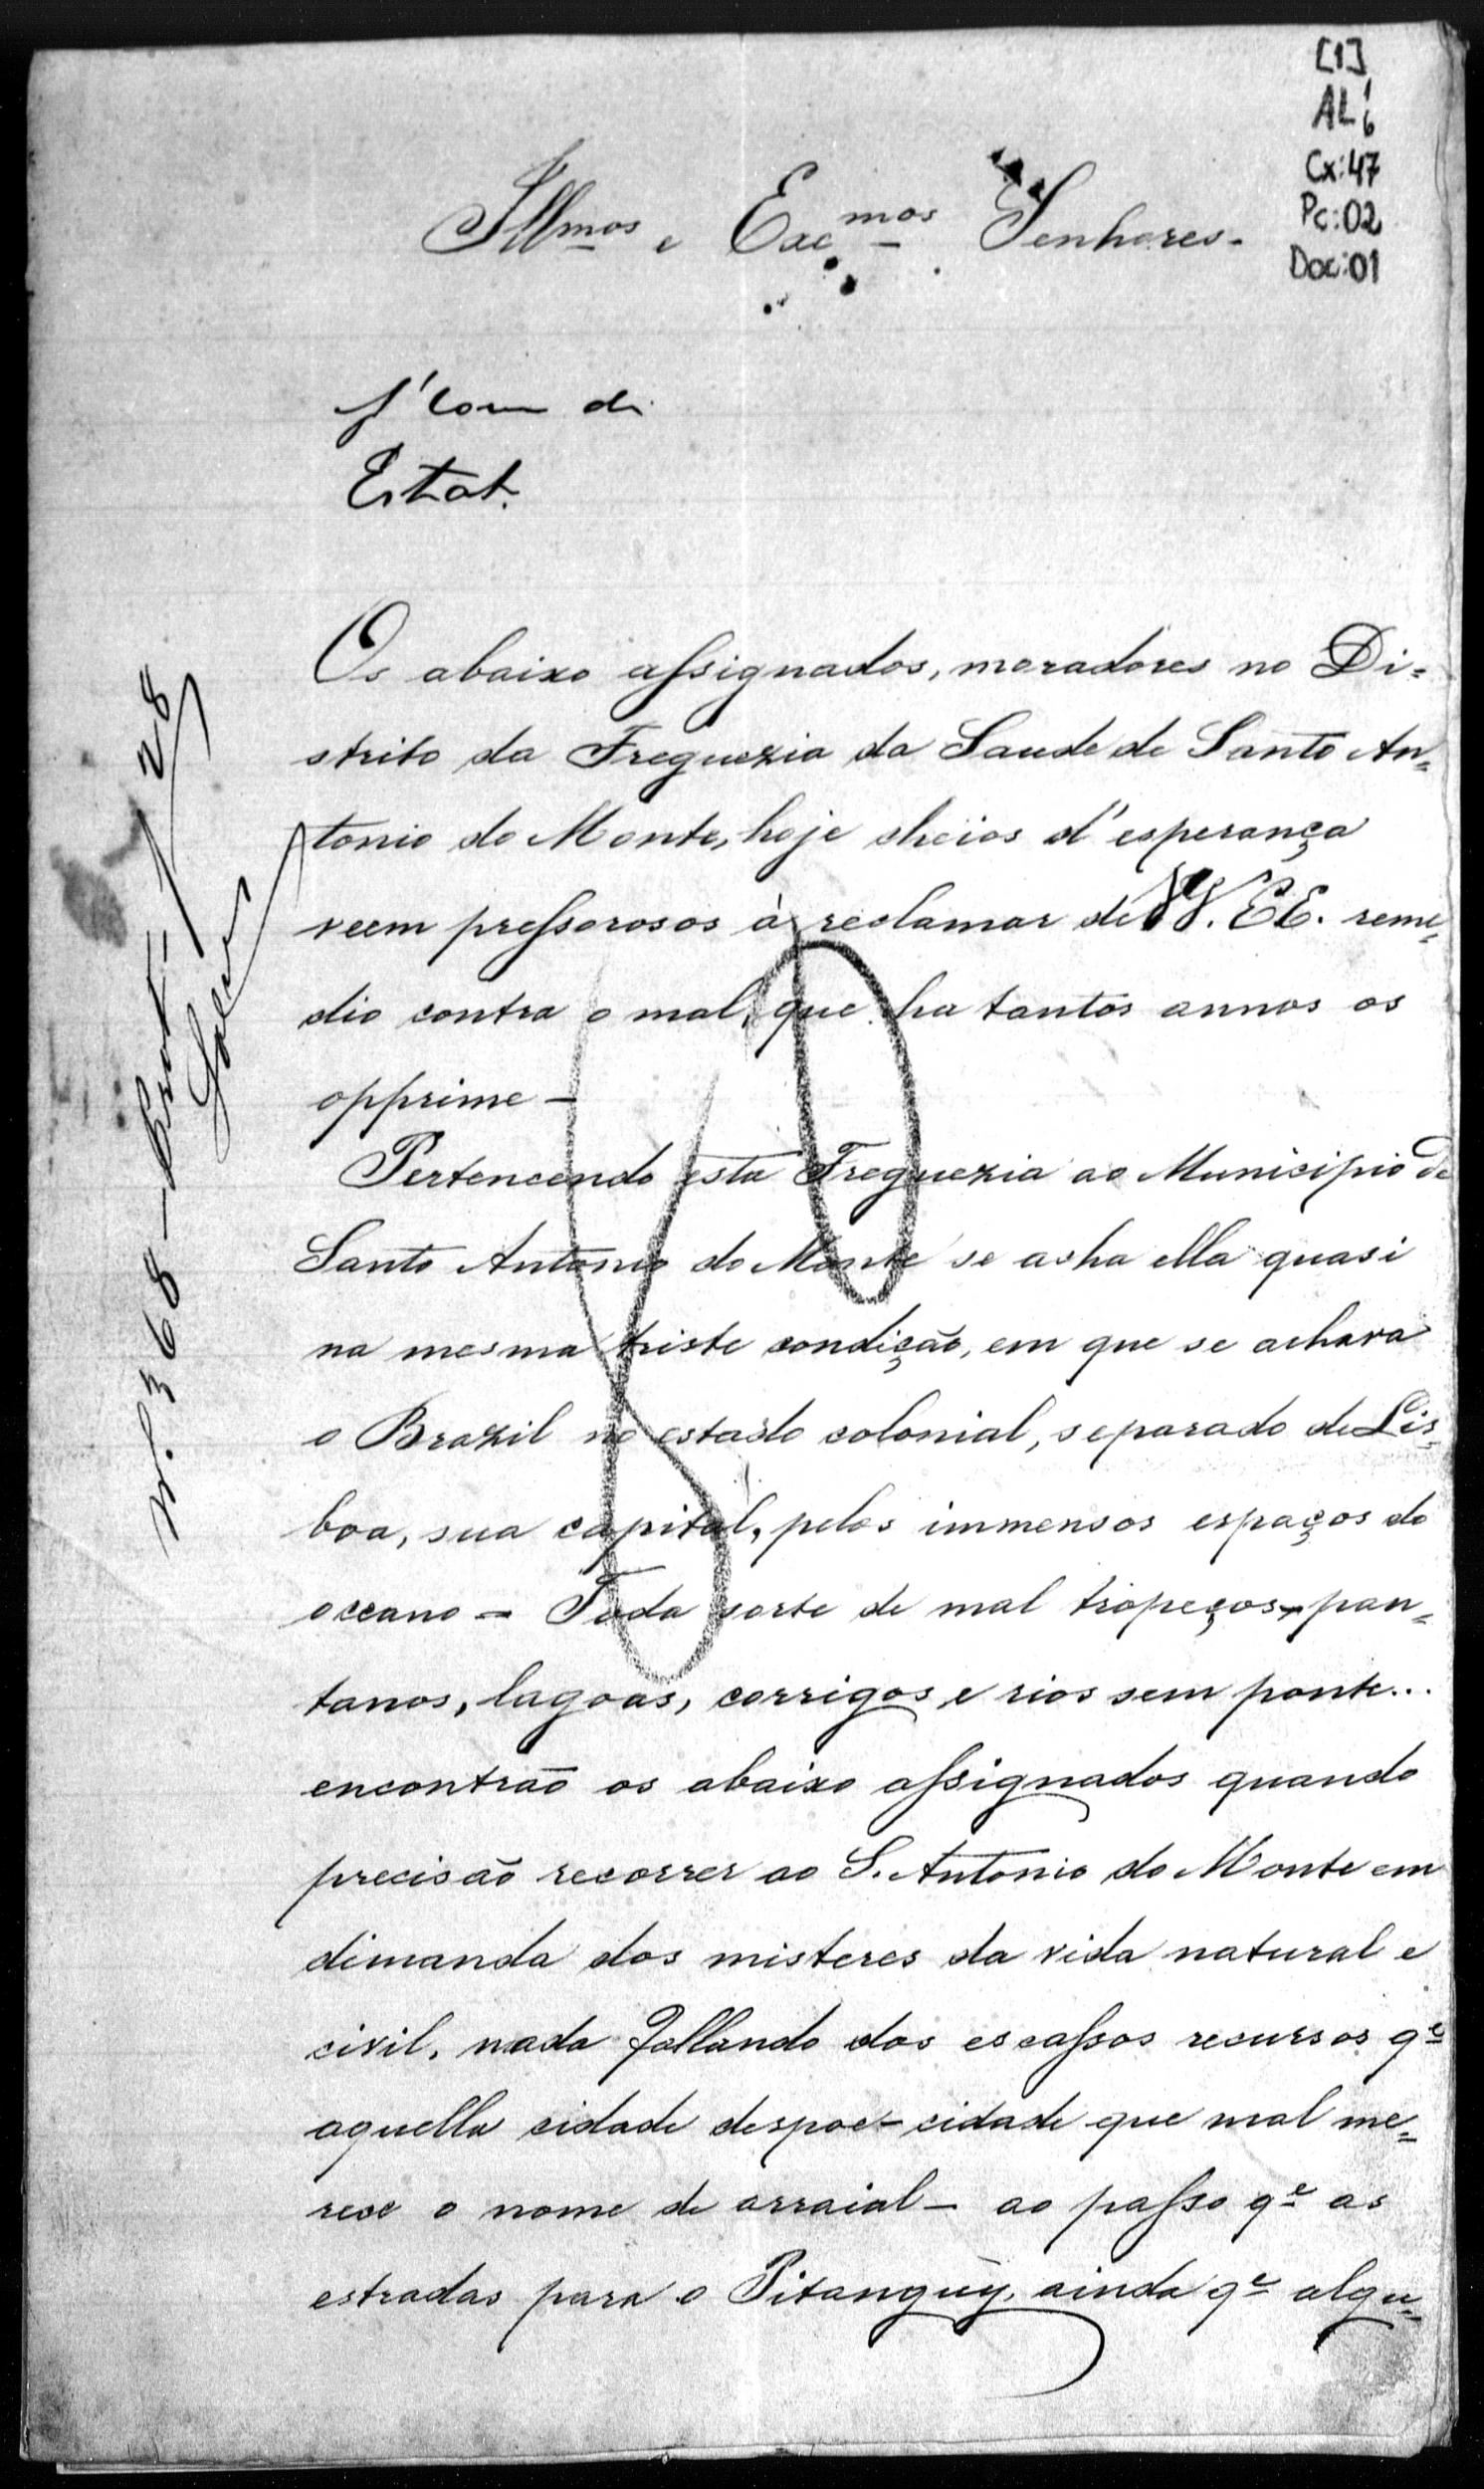 [1]
AL 1/6
Cx:47
Pc:02
Doc:01
Illmos e Excmos Senhores.
Com de
Estat.
Os abaixo assignados, moradores no Di=
strito da Freguezia da Saude de Santo An=
tonio do Monte, hoje cheios d'esperança
veem pressorosos à reclamar de VV. EE. reme=
dio contra o mal, que ha tantos annos os
opprime -
Pertencendo esta Freguezia ao Municipio de
Santo Antonio do Monte se acha ella quasi
na mesma triste condição, em que se achava
o Brazil no estado colonial, separado de Lis=
boa, sua capital, pelos immensos espaços do
oceano - Toda sorte de mal tropeços, pan=
tanos, lagoas, corrigos e rios sem ponte...
encontrão os abaixo assignados quando
precisão recorrer ao S. Antonio do Monte em
dimanda dos misteres da vida natural e
civil, nada fallando dos escassos recursos qe
aquella cidade despoe - cidade que mal me=
rece o nome de arraial - ao passo qe as
estradas para o Pitanguy, ainda qe algu=
N. 368 -
28